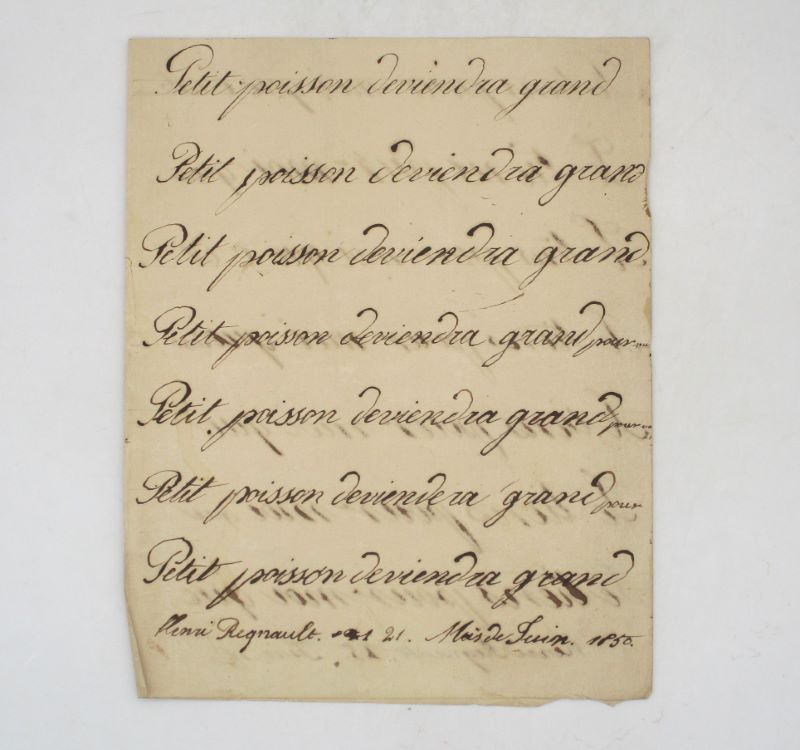 Petit poisson deviendra grand
Petit poisson deviendra grand
Petit poisson deviendra grand.
Petit poisson deviendra grand pour
Petit poisson deviendra grand pour
Petit poisson deviendera grand pour
Petit poisson deviendra grand
Henri Regnault. 21. Mois de Juin. 1850.